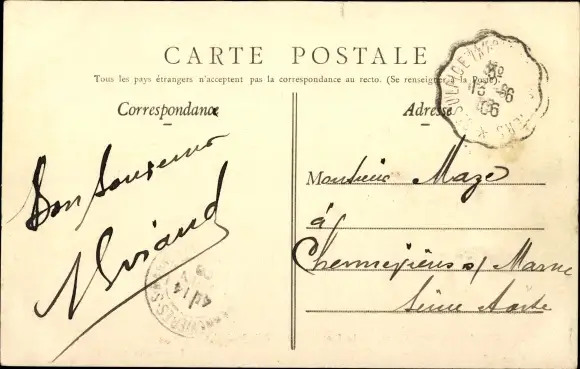 CARTE POSTALE
Tous les pays étrangers n'acceptent pas la correspondance au recto. (Se renseigner à la Poste)
Correspondance
Adresse
Bon Souvenir
Monsieur Maze
à
Chennevières s/ Marne
Seine
13
06